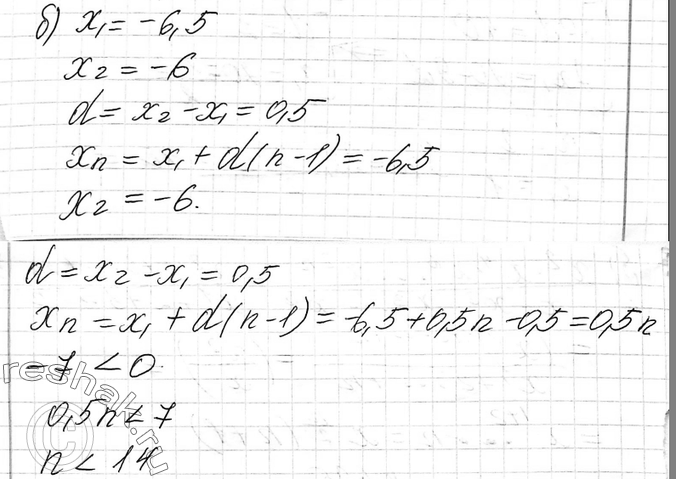 б) x₁ = -6,5
x₂ = -6
d = x₂ - x₁ = 0,5
xₙ = x₁ + d(n-1) = -6,5
x₂ = -6.
d = x₂ - x₁ = 0,5
xₙ = x₁ + d(n-1) = -6,5+0,5n -0,5 = 0,5n
-7 < 0
0,5n < 7
n < 14
reshak.ru